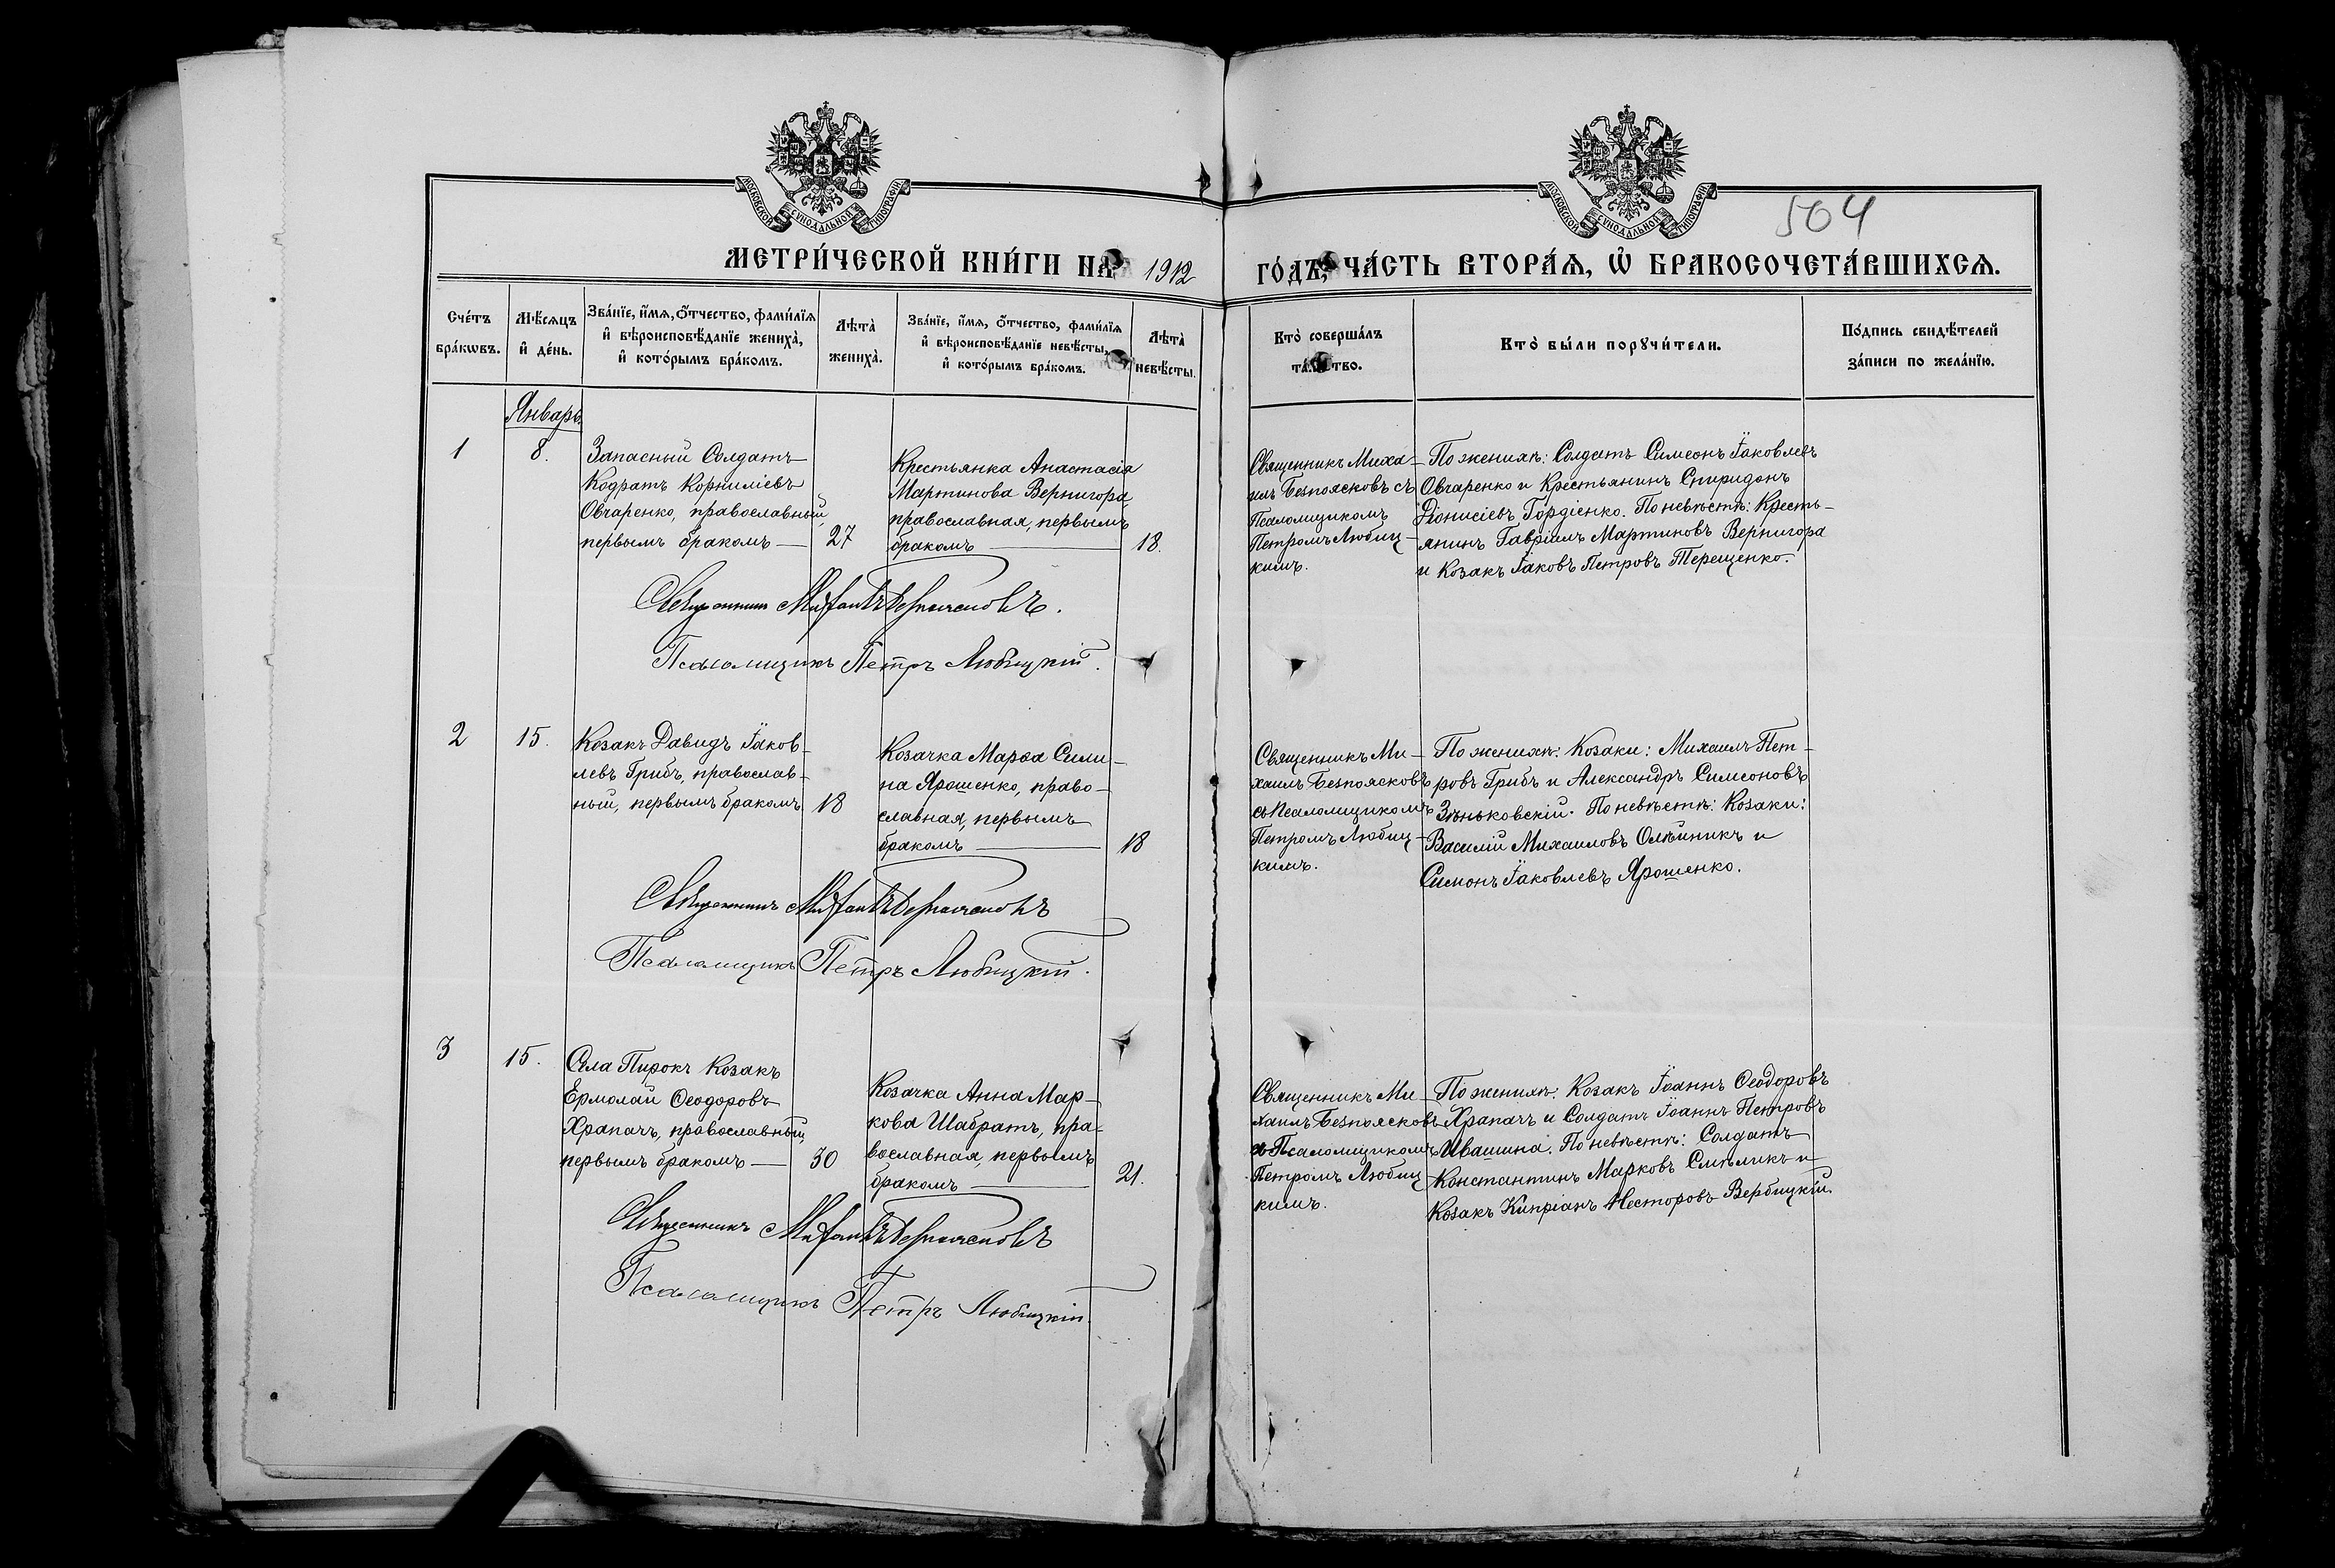 МОСКОВСКОЙ СѴНОДАЛЬНОЙ ТИПОГРАФІИ
МОСКОВСКОЙ СѴНОДАЛЬНОЙ ТИПОГРАФІИ
504
МЕТРИ́ЧЕСКОЙ КНИ́ГИ НА 1912 ГО́ДЪ, ЧА́СТЬ ВТОРА́Ѧ, Ѡ БРАКОСОЧЕТА́ВШИХСѦ.
Сче́тъ
бра́кѡвъ.
Мѣ́сѧцъ
и де́нь.
Зва́нїе, и́мѧ, ѻ́тчество, фами́лїѧ
и вѣроисповѣ́данїе жениха̀,
и кото́рымъ бра́комъ.
Лѣта̀
жениха̀.
Зва́нїе, и́мѧ, ѻ́тчество, фами́лїѧ
и вѣроисповѣ́данїе невѣ́сты,
и кото́рымъ бра́комъ.
Лѣта̀
невѣ́сты.
Кто̀ соверша́лъ
та́инство.
Кто̀ бы́ли порꙋчи́тели.
По́дпись свидѣ́телей
за́писи по жела́нїю.
Январь.
1
8.
Запасный Солдатъ
Кодратъ Корниліевъ
Овчаренко, православный,
первымъ бракомъ —
27
Крестьянка Анастасія
Мартинова Вернигора,
православная, первымъ
бракомъ —
18.
Священникъ Миха-
илъ Безпоясковъ съ
Псаломщикомъ
Петромъ Любиц-
кимъ.
По женихѣ: Солдатъ Симеонъ Іаковлевъ
Овчаренко и Крестьянинъ Спиридонъ
Діонисіевъ Гордіенко. По невѣстѣ: Кресть-
янинъ Гавріилъ Мартиновъ Вернигора
и Козакъ Іаковъ Петровъ Терещенко.
Священникъ Михаилъ Безпоясковъ.
Псаломщикъ Петръ Любицкій.
2
15.
Козакъ Давидъ Іаков-
левъ Грибъ, православ-
ный, первымъ бракомъ
18
Козачка Марѳа Сили-
на Ярошенко, право-
славная, первымъ
бракомъ —
18
Священникъ Ми-
хаилъ Безпоясковъ
съ Псаломщикомъ
Петромъ Любиц-
кимъ.
По женихѣ: Козаки: Михаилъ Пет-
ровъ Грибъ и Александръ Симеоновъ
Зѣньковскій. По невѣстѣ: Козаки:
Василій Михаиловъ Олѣйникъ и
Симонъ Іаковлевъ Ярошенко.
Священникъ Михаилъ Безпоясковъ
Псаломщикъ Петръ Любицкій.
3
15.
Села Пирокъ Козакъ
Ермолай Ѳеодоровъ
Храпачъ, православный,
первымъ бракомъ —
30
Козачка Анна Мар-
кова Шабратъ, пра-
вославная, первымъ
бракомъ —
21.
Священникъ Ми-
хаилъ Безпоясковъ
съ Псаломщикомъ
Петромъ Любиц
кимъ.
По женихѣ: Козакъ Іоаннъ Ѳеодоровъ
Храпачъ и Солдатъ Іоаннъ Петровъ
Ивашина. По невѣстѣ: Солдатъ
Константинъ Марковъ Смѣликъ и
Козакъ Кипріанъ Несторовъ Вербицкій.
Священникъ Михаилъ Безпоясковъ
Псаломщикъ Петръ Любицкій.